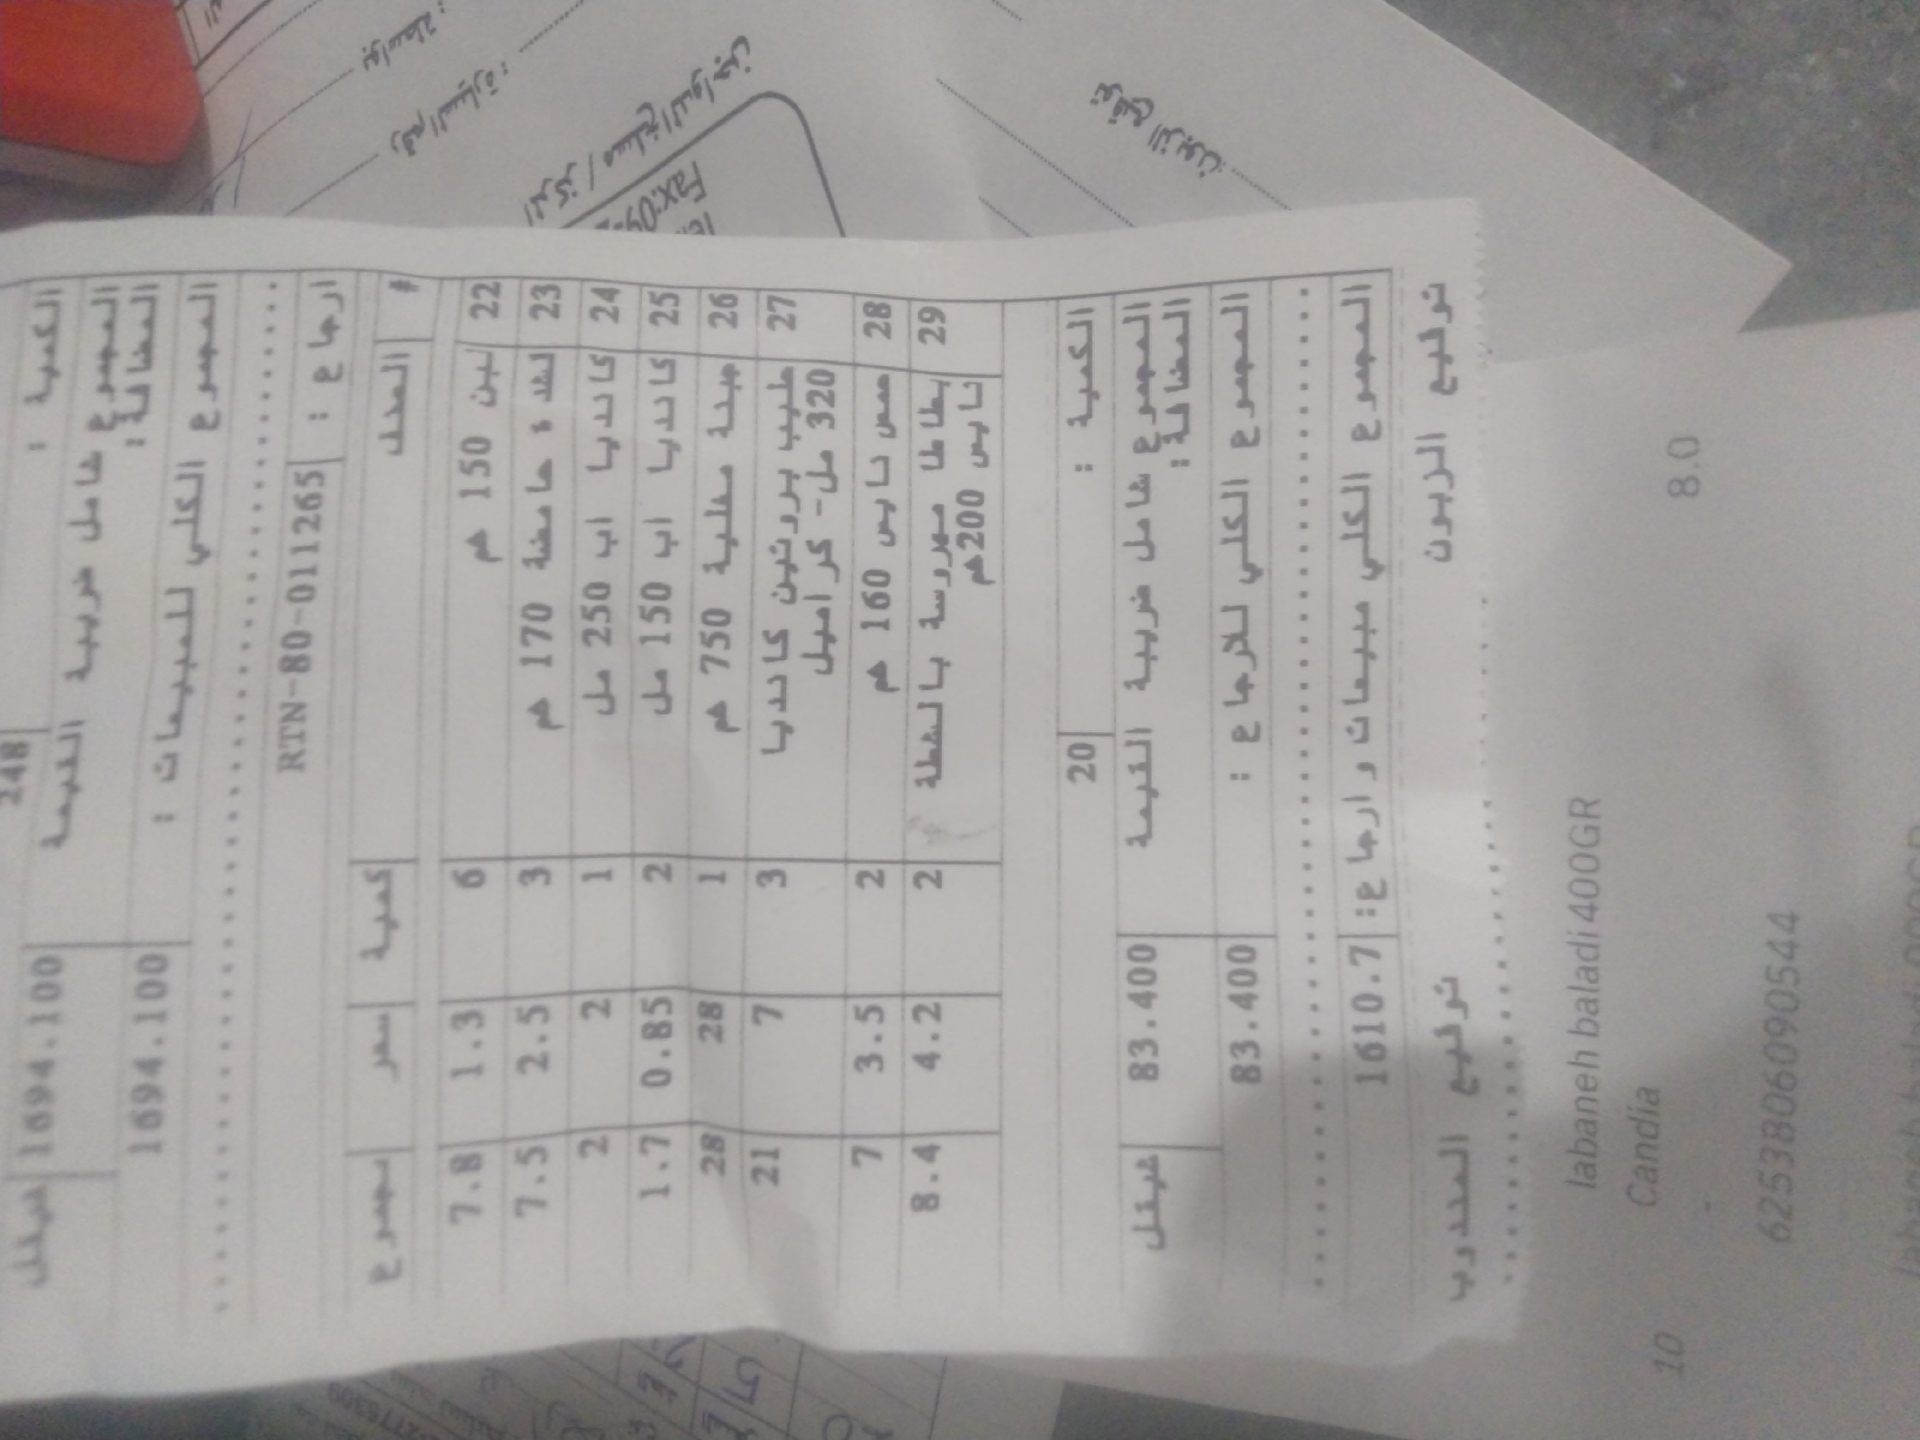 الكمية : 248
المجموع شامل ضريبة القيمة المضافة: 1694.100 شيقل
المجموع الكلي للمبيعات : 1694.100
ارجاع : RTN-80-011265
# الصنف كمية سعر مجموع
22 لبن 150 غم 6 1.3 7.8
23 حامضة 170 غم 3 2.5 7.5
24 كانديا اب 250 مل 1 2 2
25 كانديا اب 150 مل 2 0.85 1.7
26 جبنة مغلية 750 غم 1 28 28
27 حليب بروتين كانديا 3 7 21
320 مل- كراميل
28 حمص تايس 160 غم 2 3.5 7
29 بطاطا مهروسة بالشطة 2 4.2 8.4
تايس 200غم
الكمية : 20
المجموع شامل ضريبة القيمة المضافة: 83.400 شيقل
المجموع الكلي للارجاع : 83.400
المجموع الكلي مبيعات وارجاع: 1610.7
توقيع الزبون توقيع المندوب
بواسطة :
رقم السيارة :
المركز / مسلخ الدواجن
Fax:09-
توقيع الزبون
labaneh baladi 400GR
10 Candia 8.0
-
6253806090544